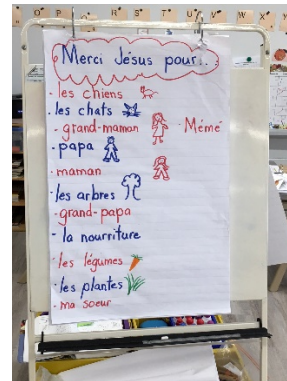 O P Q R S T U V W X
Merci Jésus pour...
· les chiens
· les chats
· grand-maman · Mémé
· papa
· maman
· les arbres
· grand-papa
· la nourriture
· les légumes
· les plantes
· ma soeur